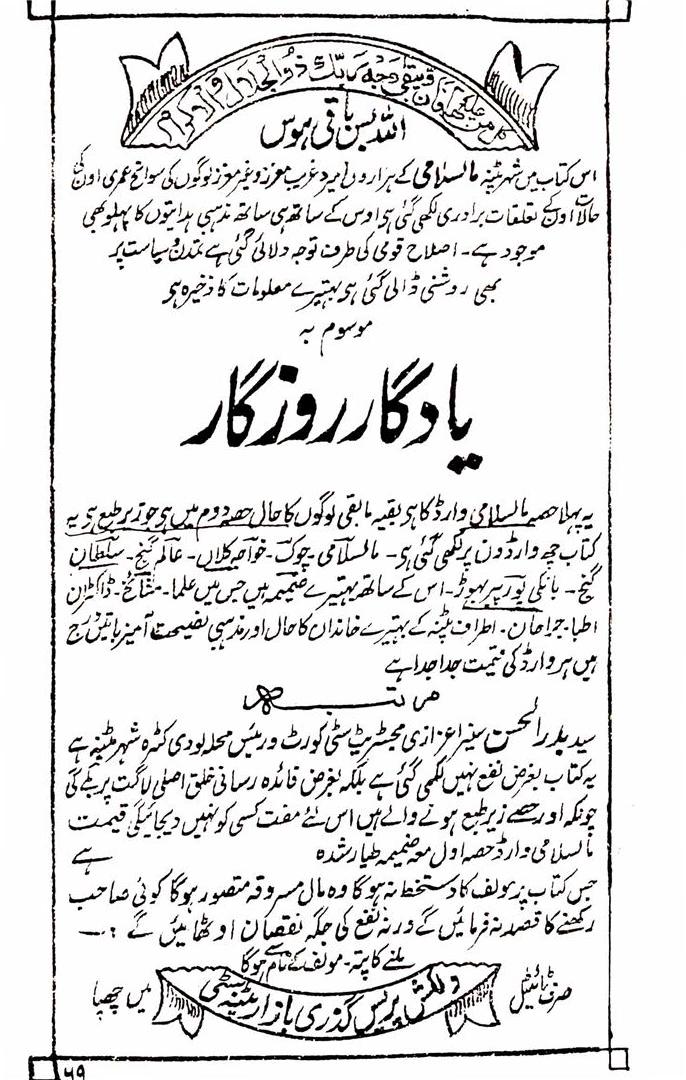 کل من علیھا فان ویبقی وجہ ربک ذوالجلال والاکرام
اللہ بس باقی ہوس
اس کتاب میں شہر پٹنہ مالسلامی کے ہزاروں امیر و غریب معزز و غیر معزز لوگوں کی سوانح عمری اون کی
حالات اون کے تعلقات برادری لکھی گئی ہی اوس کے ساتھ ہی ساتھ مذہبی ہدایتوں کا پہلو بھی
موجود ہے۔ اصلاح قومی کی طرف توجہ دلائی گئی ہے تمدن و سیاست پر
بھی روشنی ڈالی گئی ہی بہتیرے معلومات کا ذخیرہ ہی
موسوم بہ
یادگار روزگار
یہ پہلا حصہ مالسلامی وارڈ کا ہی بقیہ مابقی لوگوں کا حال حصہ دوم میں ہی جو زیر طبع ہی یہ
کتاب چھ وارڈون پر لکھی گئی ہی۔ مالسلامی۔ چوک۔ خواجہ کلاں۔ عالم گنج۔ سلطان
گنج۔ بانکی پور پیر بہوڑ۔ اس کے ساتھ بہتیرے ضمیمہ ہیں جس میں علما۔ مشائخ۔ ڈاکٹران
اطبا۔ جراحان۔ اطراف پٹنہ کے بہتیرے خاندان کا حال اور مذہبی نصیحت آمیز باتیں درج
ہیں ہر وارڈ کی قیمت جدا جدا ہے
مرتبہ
سید بدر الحسن سنیر اعزازی مجسٹریٹ سٹی کورٹ و رئیس محلہ لودی کٹرہ شہر پٹنہ ہے
یہ کتاب بغرض نفع نہیں لکھی گئی ہے بلکہ بغرض فائدہ رسانی خلق اصلی لاگت پر بکے گی
چونکہ اور حصے زیر طبع ہونے والے ہیں اس لئے مفت کسی کو نہیں دیجائیگی قیمت
مالسلامی وارڈ حصہ اول معہ ضمیمہ طیار شدہ ہے
جس کتاب پر مولف کا دستخط نہ ہوگا وہ مال مسروقہ متصور ہوگا کوئی صاحب
رکھنے کا قصد نہ فرمائیں گے ورنہ نفع کی جگہ نقصان اوٹھائیں گے ؟۔
ملنے کا پتہ۔ مولف کے نام سے ہوگا
صرف ٹائیٹل دلکش پریس گذری بازار پٹنہ سیٹی میں چھپا
۵۹